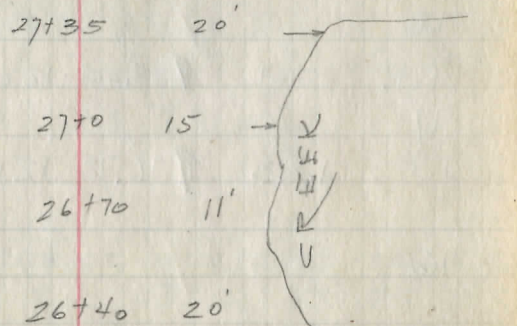 27+35 20'
27+0 15
26+70 11'
26+40 20'
CREEK